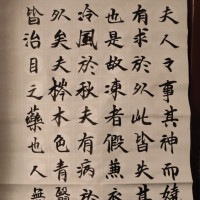 夫人之事其神而嬈
有求於外此皆失其
也是故凍者假蒹衣
冷風於秋夫有病於
外矣夫梣木色青翳
皆治目之藥也人無